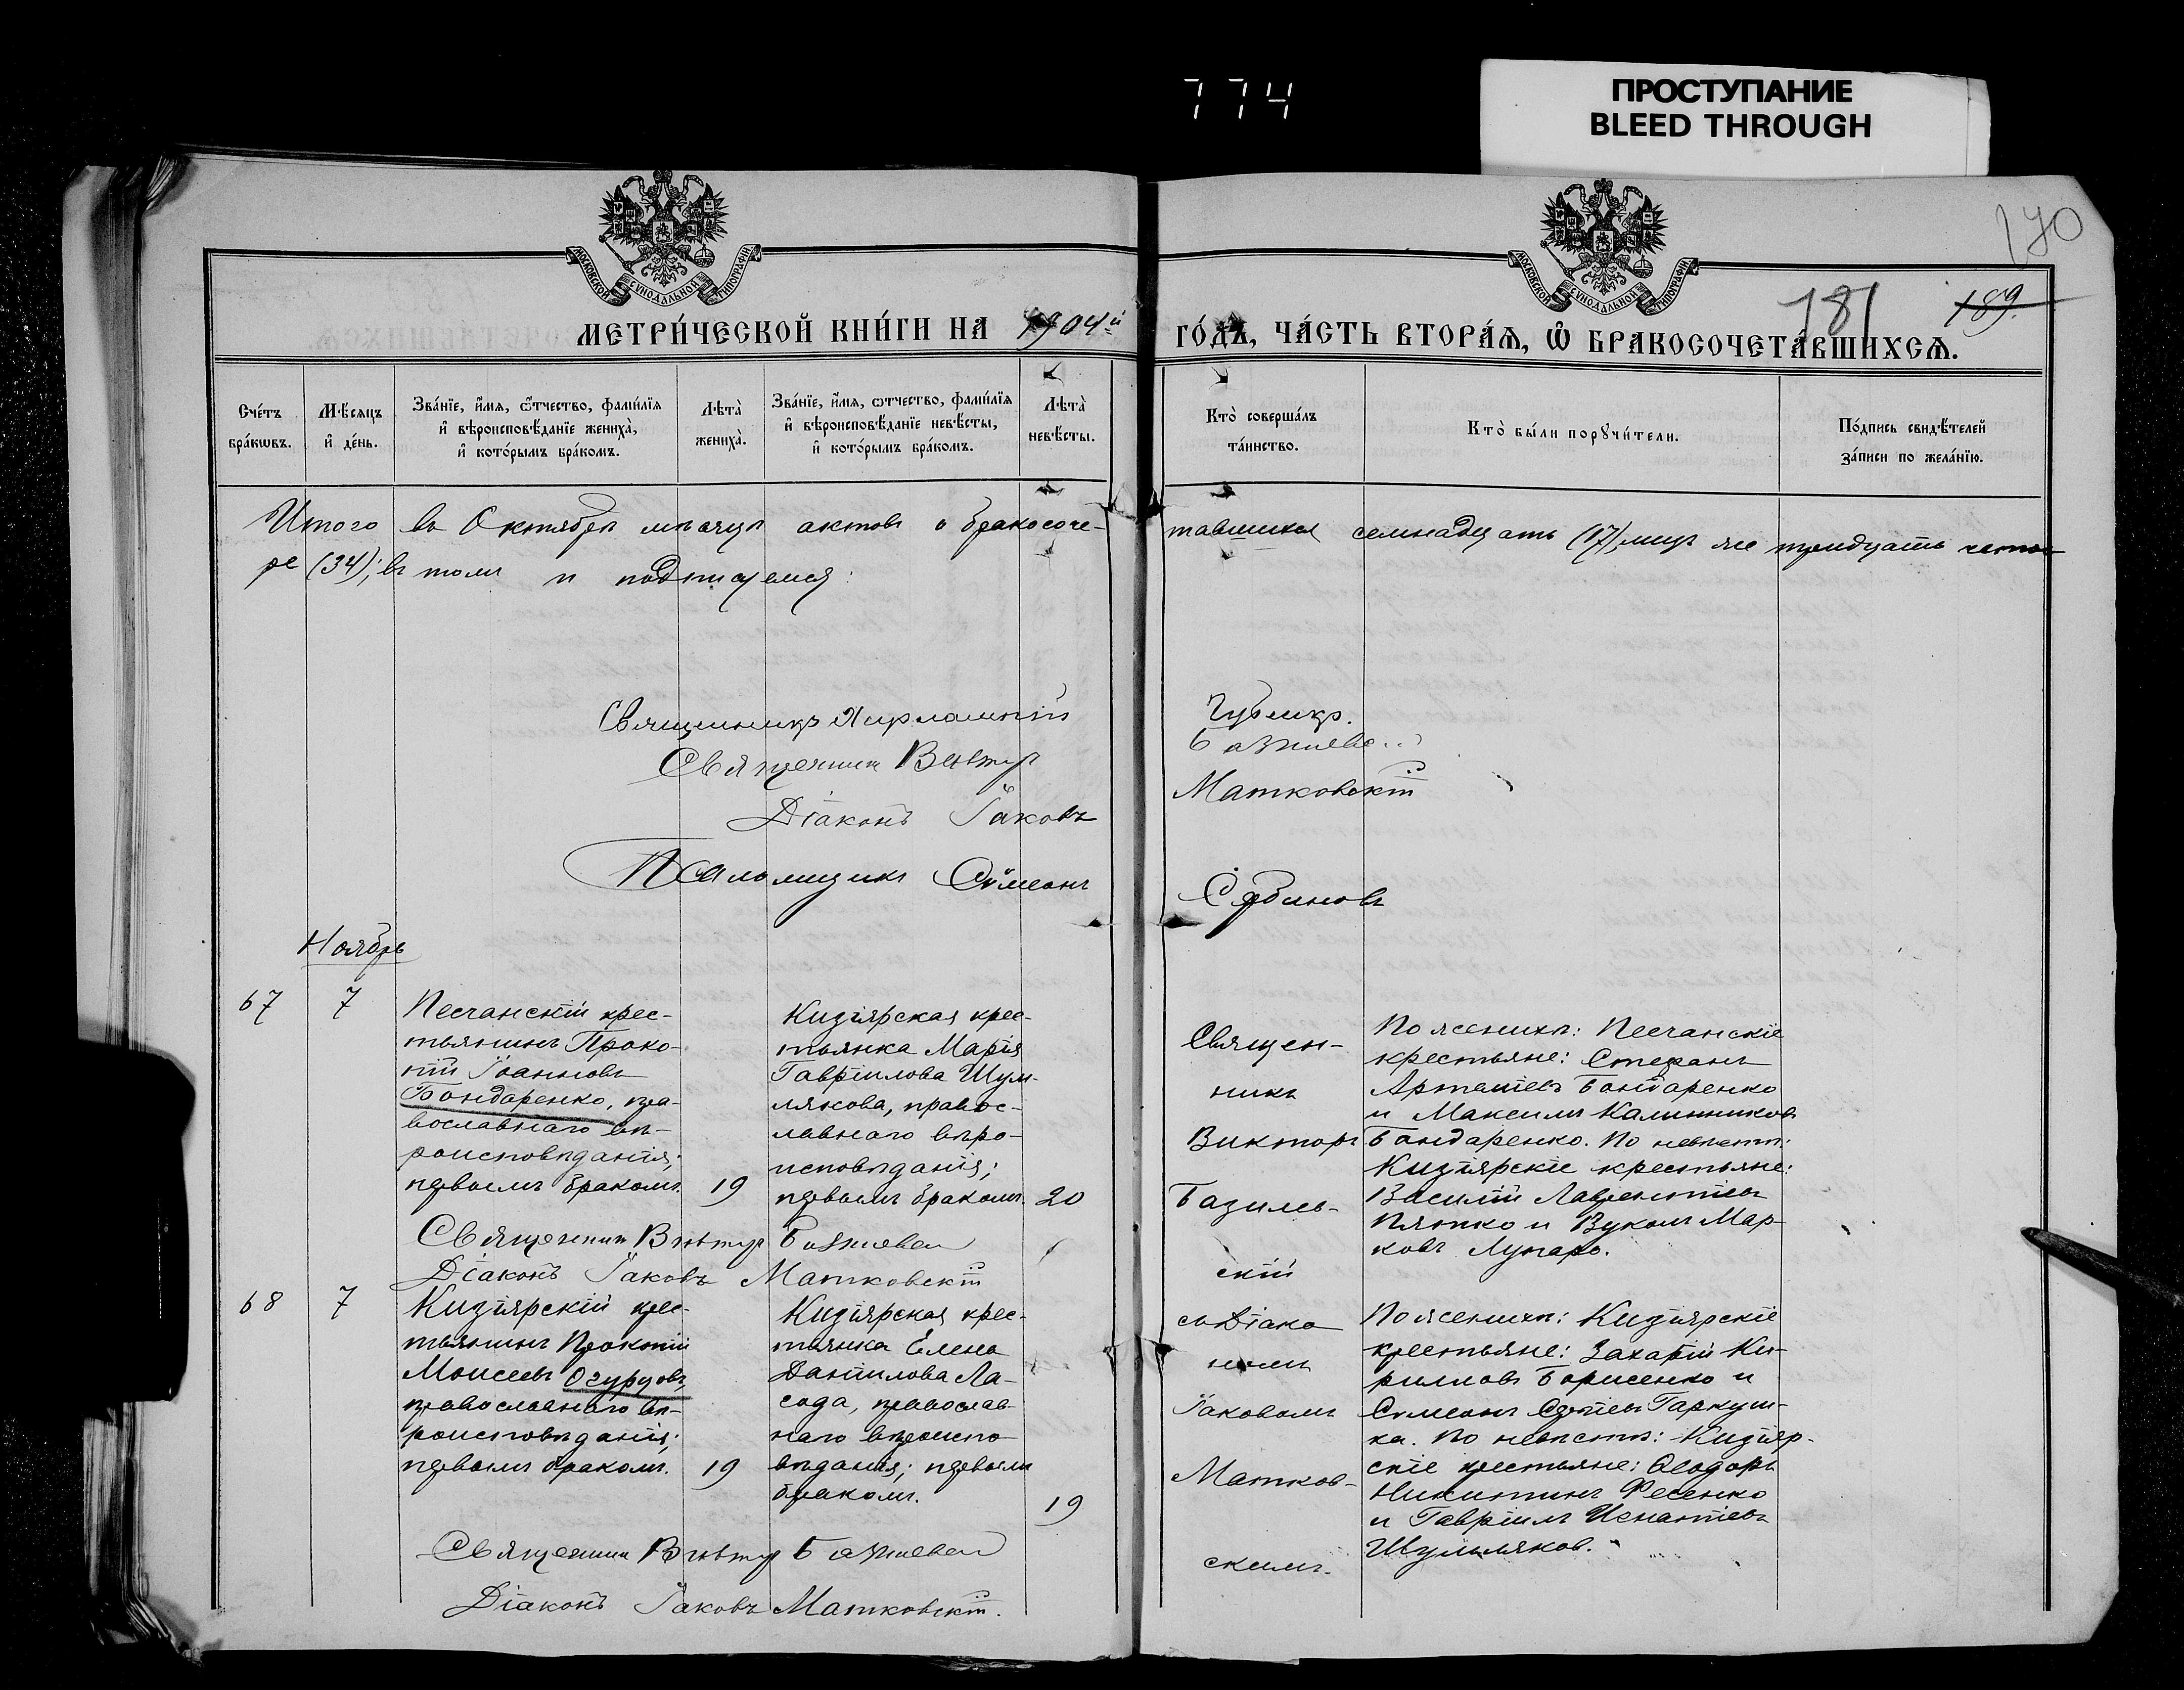 774
ПРОСТУПАНИЕ
BLEED THROUGH
170
МОСКОВСКОЙ СѴНОДАЛЬНОЙ ТИПОГРАФІИ
МОСКОВСКОЙ СѴНОДАЛЬНОЙ ТИПОГРАФІИ
181 189.
МЕТРИ́ЧЕСКОЙ КНИ́ГИ НА 1904й ГО́ДЪ, ЧА́СТЬ ВТОРА́Ѧ, Ѽ БРАКОСОЧЕТА́ВШИХСѦ.
Сче́тъ бра́кѡвъ.
Мѣ́сяцъ и҆ де́нь.
Зва́нїе, и҆́мя, ѻ҆́тчество, фами́лїя
и҆ вѣроисповѣ́данїе жениха̀,
и҆ кото́рымъ бра́комъ.
Лѣта̀ жениха̀.
Зва́нїе, и҆́мя, ѻ҆́тчество, фами́лїя
и҆ вѣроисповѣ́данїе невѣ́сты,
и҆ кото́рымъ бра́комъ.
Лѣта̀ невѣ́сты.
Кто̀ соверша́лъ та́инство.
Кто̀ бы́ли порꙋчи́тели.
По́дпись свидѣ́телей за́писи по жела́нїю.
Итого въ Октябрѣ мѣсяцѣ актовъ о бракосоче-
тавшихся семнадцать (17), лицъ же тридцать четы-
ре (34); въ томъ и подписуемся:
Священникъ Чубликъ.
Священникъ Викторъ Базилев
Діаконъ Іаковъ Матковскій
Псаломщикъ Сѵмеонъ Сербиновъ
Ноябрь
67 7
Песчанскій крес-
тьянинъ Проко-
пій Іоанновъ
Бондаренко, пра-
вославнаго вѣ-
роисповѣданія;
первымъ бракомъ. 19
Кизіярская крес-
тьянка Марія
Гавріилова Шум-
лякова, правос-
лавнаго вѣро-
исповѣданія;
первымъ бракомъ. 20
Священ-
никъ
Викторъ
Базилев-
скій
съ Діако
номъ
Іаковомъ
Матков-
скимъ.
По женихѣ: Песчанскіе
крестьяне: Стефанъ
Артемьевъ Бондаренко
и Максимъ Калинниковъ
Бондаренко. По невѣстѣ:
Кизіярскіе крестьяне:
Василій Лаврентіевъ
Пляпко и Вуколъ Мар-
ковъ
Священникъ Викторъ Базилев
Діаконъ Іаковъ Матковскій
68 7
Кизіярскій крес-
тьянинъ Прокопій
Моисеевъ Огурцовъ,
православнаго вѣ-
роисповѣданія;
первымъ бракомъ. 19
Кизіярская крес-
тьянка Елена
Даніилова Ла-
сода, православ-
наго вѣроиспо-
вѣданія; первымъ
бракомъ. 19
По женихѣ: Кизіярскіе
крестьяне: Захарій Ки-
рилловъ Борисенко и
Сѵмеонъ Гаркуш-
ка. По невѣстѣ: Кизіяр-
скіе крестьяне: Ѳеодоръ
Никитинъ Фесенко
и Гавріилъ Игнатіевъ
Шумляковъ.
Священникъ Викторъ Базилев
Діаконъ Іаковъ Матковскій.